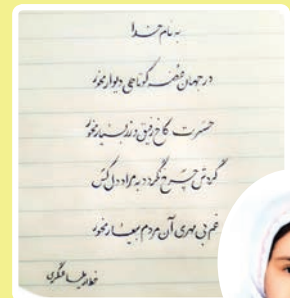 به نام خدا
در جهان غصه کوتاهی دیوار مخور
حسرت کاخ رفیق و زر بسیار مخور
گردش چرخ نگردد به مراد دل کس
غم بی مهری آن مردم بیعار مخور
خط از